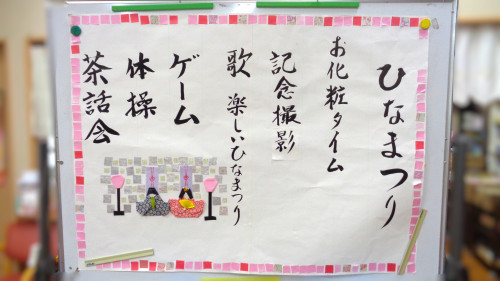 ひなまつり
お化粧タイム
記念撮影
歌 楽しいひなまつり
ゲーム
体操
茶話会